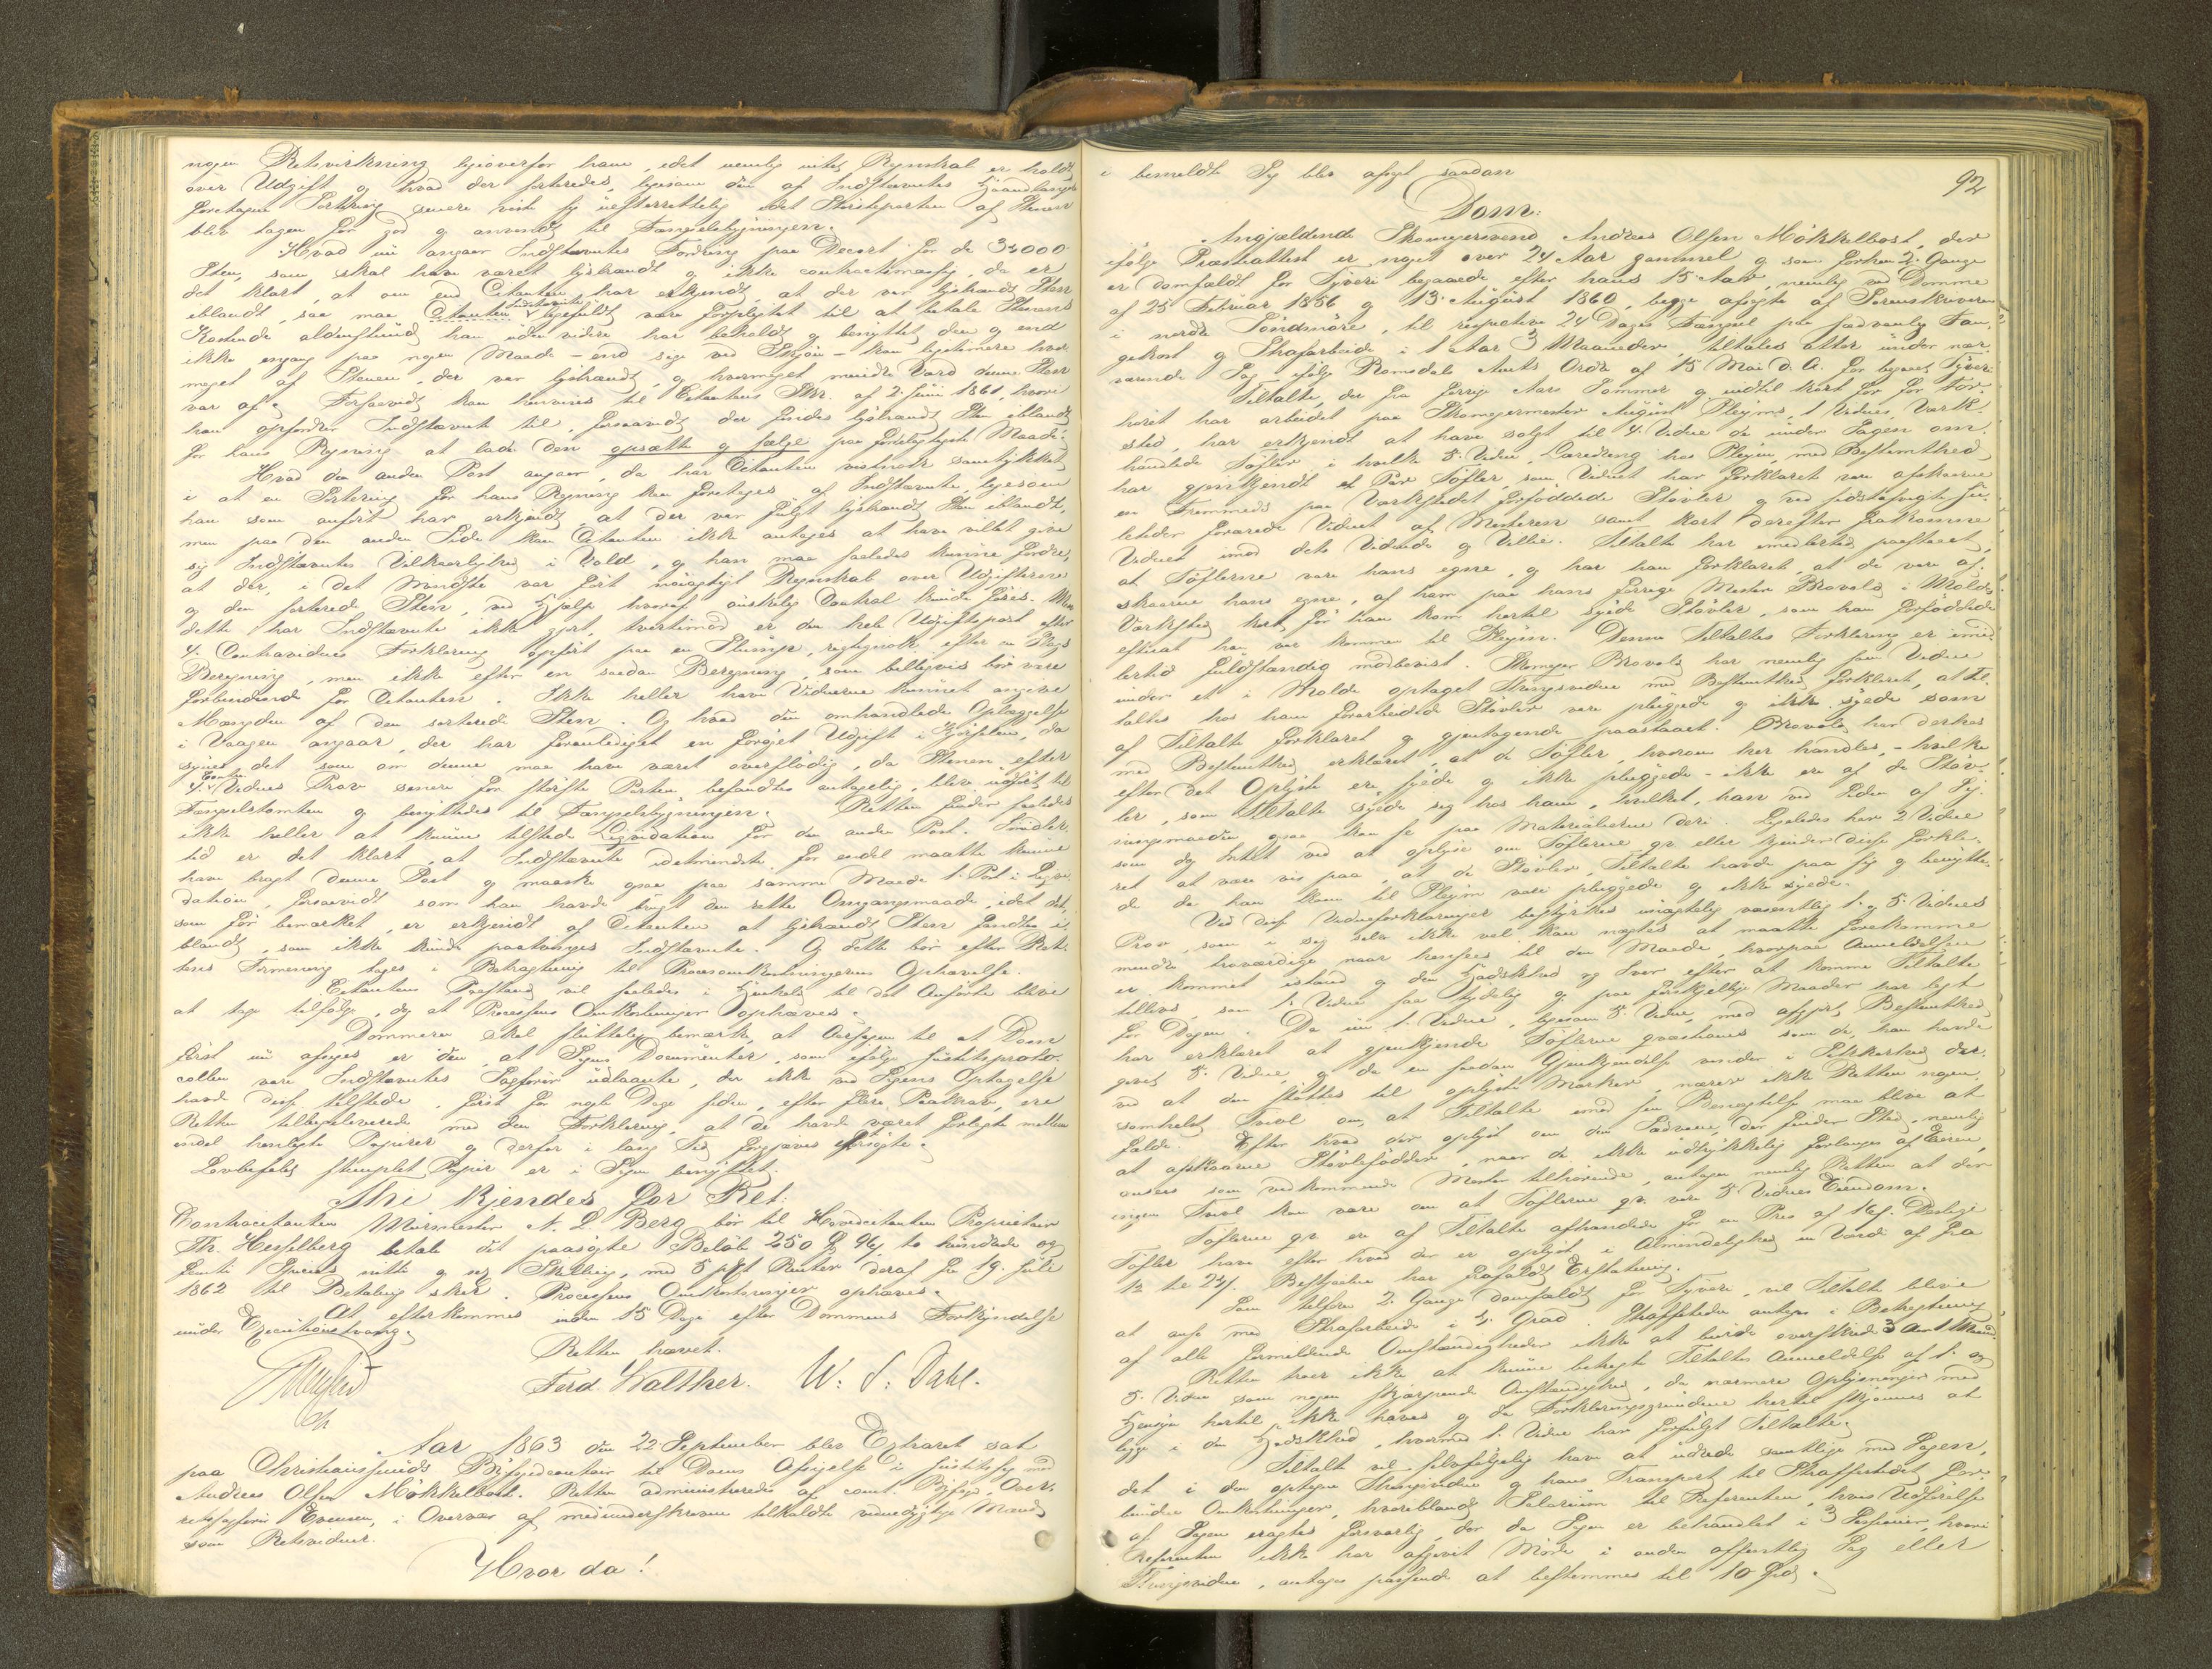 nogen Retsvirkning ligeoverfor ham, idet nemlig intet Regnskab er holdt
over Udgift og hvad der sorteredes, ligesom den af Indstævntes Haandlanger
foretagne Sortering senere viste sig uefterrettelig idet Størsteparten af Stenen
blev tagen for god og anvendt til Fængselsbygningen.
Hvad nu angaar Indstævntes Fordring paa Decort for de 34000
Sten, som skal have været lysbrændt og ikke contractsmæssig, da er
det klart, at om end Citanten har erkjendt, at der var lysbrændt Sten
iblandt, saa maa Citanten Indstævnte ligefuldt være forpligtet til at betale Stenens
Kostende aldenstund han uden videre har beholdt og benyttet den og end
ikke engang paa nogen Maade – end sige ved Skjøn – kan legitimere hvor
meget af Stenen, der var lysbrændt, og hvormeget mindre Værd denne Sten
var af. Forsaavidt kan henvises til Citantens Skr. af 2 Juni 1861, hvori
han opfordrer Indstævnte til, forsaavidt der findes lysbrændt Sten iblandt
for hans Regning at lade den opsætte og sælge paa Maade.
Hvad den anden Post angaar, da har Citanten vistnok samtykket
i at en Sortering for hans Regning kan foretages af Indstævnte, ligesom
han som anført har erkjendt, at der var fulgt lysbrændt Sten iblandt,
men paa den anden Side kan Citanten ikke antages at have villet give
sig Indstævntes Vilkaarlighed i Vold, og han maa saaledes kunne fordre,
at der, i det Mindste var ført nøiagtigt Regnskab over Udgifterne
og den sorterede Sten, ved Hjælp hvoraf ønskelig Control kunde føres. Men
dette har Indstævnte ikke gjort, tvertimod er den hele Udgiftspost efter
4. Contravidnes Forklaring opført paa en Slump, rigtignok efter en Slags
Beregning, men ikke efter en saadan Beregning, som billigvis bør være
forbindende for Citanten. Ikke heller have Vidnerne kunnet angive
Mængden af den sorterede Sten. Og hvad den omhandlede Oplæggelse
i Vaagen angaar, der har foranlediget en forøget Udgift i Kjørselen, da
synes det som om denne maa have været overflødig, da Stenen efter
4. Contra Vidnes Prov senere for største Parten befandtes antagelig, blev udført til
Fængselstomten og benyttedes til Fængselsbygningen. Retten finder saaledes
ikke heller at kunne tilstede Liqvidation for den anden Post. Imidler-
tid er det klart, at Indstævnte idetmindste for endel maatte kunne
have bragt denne Post og maaske ogsaa paa samme Maade 1. Post i Liqvi-
dation, forsaavidt som han havde brugt den rette Omgangsmaade, idet det,
som før bemærket, er erkjendt af Citanten at lysbrændt Sten fandtes i-
blandt, som ikke kunde paatvinges Indstævnte. Og dette bør efter Ret-
tens Formening tages i Betragtning til Procesomkostningernes Ophævelse.
Citantens Paastand vil saaledes i Henhold til det Anførte blive
at tage tilfølge, dog at Processens Omkostninger ophæves.
Dommeren skal sluttelig bemærke, at Aarsagen til at Dom
først nu afsiges er den, at Sagens Documenter, som ifølge Justitsproto-
collen vare Indstævntes Sagfører udlaante, der ikke ved Sagens Optagelse
havde disse tilstede, først for nogle Dage siden, efter flere Paakrav, ere
Retten tilbageleverede med den Forklaring, at de havde været forlagte mellem
endel henlagte Papirer og derfor i lang Tid forgjæves eftersøgte.
Lovbefalet stemplet Papir er i Sagen benyttet.
Thi kjendes for Ret:
Contracitanten Muurmester N. L. Berg bør til Hovedcitanten Proprietair
Th. Hesselberg betale det paasøgte Beløb 250 Spd 96ſ to hundrede og
femti Species nitti og sex Skilling, med 5 pCt Renter deraf fra 19. Juli
1862 til Betaling skeer. Processens Omkostninger ophæves.
At efterkommes inden 15 Dage efter Dommens Forkyndelse
under Executionstvang.
Retten hævet.
Ferd Walther. W. S. Dahl.
Aar 1863 den 22 September blev Extraret sat
paa Christianssunds Byfogedcontoir til Doms Afsigelse i Justitssag mod
Andreas Olsen Møkkelbost. Retten administreredes af const. Byfoged, Over-
retssagfører Evensen, i Overvær af medunderskrevne tilkaldte vinedygtige Mænd
som Retsvidner.
Hvor da!
92
i bemeldte Sag blev afsagt saadan
Dom:
Angjældende Skomagersvend Andreas Olsen Møkkelbost, der
ifølge Præsteattest er noget over 24 Aar gammel og som forhen 2 Gange
er domfældt for Tyveri begaaede efter hans 15 Aar, nemlig ved Domme
af 25 Februar 1856 og 13 August 1860, begge afsagte af Sorenskriveren
i nordre Søndmøre, til respective 24 Dages Fængsel paa sædvanlig Fan-
gekost og Strafarbeide i 1 Aar 3 Maaneder, tiltales atter under nær-
værende Sag ifølge Romsdals Amts Ordre af 15 Mai d. A. for begaaet Tyveri
Tiltalte, der fra forrige Aars Sommer og indtil kort før for For-
høret har arbeidet paa Skomagermester August Pleyms, 1 Vidnes, Værk-
sted, har erkjendt at have solgt til 4. Vidne de under Sagen om-
handlede Tøfler, i hvilke 5. Vidne, Læredreng hos Pleym, med Bestemthed
har gjenkjendt et Par Tøfler, som Vidnet har forklaret var afskaarne
en Fremmeds paa Værkstedet forfoddede Støvler og ved sidstafvigte Ju-
letider forærede Vidnet af Mesteren samt kort derefter frakomne
Vidnet imod dets Vidende og Villie. Tiltalte har imidlertid paastaaet,
at Tøflerne vare hans egne, og har han forklaret, at de vare af-
skaarne hans egne, af ham paa hans forrige Mester Brovolds i Molde
Værksted kort før han kom hertil syede Støvler, som han forfoddede
efterat han var kommen til Pleym. Denne Tiltaltes Forklaring er imid-
lertid fuldstændig modbevist. Skomager Brovold har nemlig som Vidne
under et i Molde optaget Thingsvidne med Bestemthed forklaret, at de Til-
taltes hos ham forarbeidede Støvler vare pluggede og ikke syede som
af Tiltalte forklaret og gjentagende paastaaet. Brovold har derhos
med Bestemthed erklæret, at de Tøfler, hvorom her handles, – hvilke
efter det Oplyste ere syede og ikke pluggede – ikke ere af de Støv-
ler, som Tiltalte syede sig hos ham, hvilket, han ved Siden af Sy-
ningsmaaden ogsaa kan se paa Materialierne deri. Ligeledes har 2 Vidne
som dog Intet ved at oplyse om Tøflerne qv eller kjender disse forkla-
ret at være vis paa, at de Støvler, Tiltalte havde paa sig og benytte-
de da han kom til Pleym vare pluggede og ikke syede.
Ved disse Vidneforklaringer bestyrkes unægtelig væsentlig 1. og 5. Vidners
Prov, som i sig selv ikke vel kan nægtes at maatte forekomme
mindre troværdige naar henses til den Maade, hvorpaa Anmeldelsen
er kommet istand og den Hadskhed og Iver efter at komme Tiltalte
tillivs, som 1. Vidne saa tydelig og paa forskjellige Maader har lagt
for Dagen. Da nu 1. Vidne, ligesom 5 Vidne, med afgjort Bestemthed
har erklæret at gjenkjende Tøflerne qvæstionis som de, han havde
givet 5. Vidne, og da en saadan Gjenkjendelse vinder i Sikkerhed der-
ved at den støttes til oplyste Mærker, nærer ikke Retten nogen-
somhelst Tvivl om, at Tiltalte imod sin Benægtelse maa blive at
fælde. Efter hvad der er oplyst om den Sædvane, der finder Sted, nemlig
at afskaarne Støvlefødder, naar de ikke udtrykkelig forlanges af Eieren,
ansees som vedkommende Mester tilhørende, antager nemlig Retten at der
ingen Tvivl kan være om at Tøflerne qv. vare 5. Vidnes Eiendom.
Tøflerne qv. ere af Tiltalte afhændede for en Pris af 16ſ. Deslige
Tøfler have efter hvad der er oplyst i Almindelighed en Værdi af fra
12 til 24ſ. Bestjaalne har frafaldt Erstatning.
Som tilforn 2 Gange domfældt for Tyveri, vil Tiltalte blive
at anse med Strafarbeide i 4. Grad. Straffetiden antages i Betragtning
af alle formildende Omstændigheder ikke at burde overskride 3 Aar 1 Maaned.
Retten troer ikke at kunne betragte Tiltaltes Anmeldelse af 1. og
5. Vidne som nogen skjærpende Omstændighed, da nærmere Oplysninger med
Hensyn hertil ikke haves og da Forklaringsgrundene hertil skjønnes at
ligge i den Hadskhed, hvormed 1. Vidne har forfulgt Tiltalte.
Tiltalte vil selvfølgelig have at udrede samtlige med Sagen,
det i den optagne Thingsvidne og hans Transport til Straffestedet for-
bundne Omkostninger, hvoriblandt Salarium til Referenten, hvis Udførelse
af Sagen eragtes forsvarlig, der da Sagen er behandlet i 3 Sessioner, hvori
Referenten ikke har afgivet Møde i anden offentlig Sag eller
Thingsvidne, antages passende at bestemmes til 10 Spd.